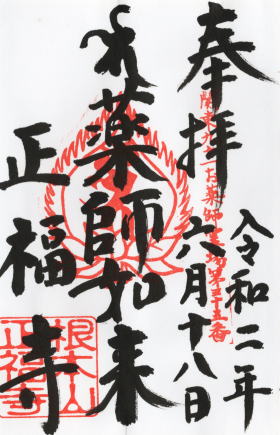 奉拝
令和二年
六月十八日
関東九十一お薬師霊場第三十五番
薬師如来
正福寺
根本山
正福寺